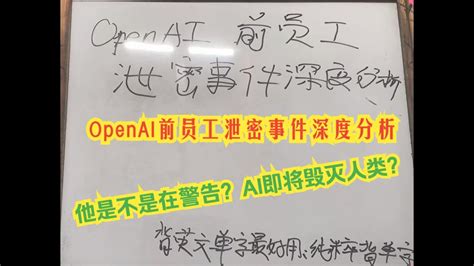 OpenAI 前员工
泄密事件深度分析
OpenAI前员工泄密事件深度分析
他是不是在警告？AI即将毁灭人类？
背英文单字最好用:纯粹背单字